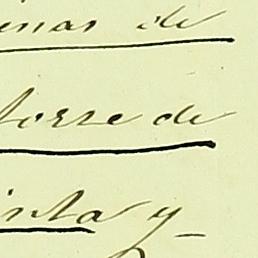 enas de
torre de
inta y